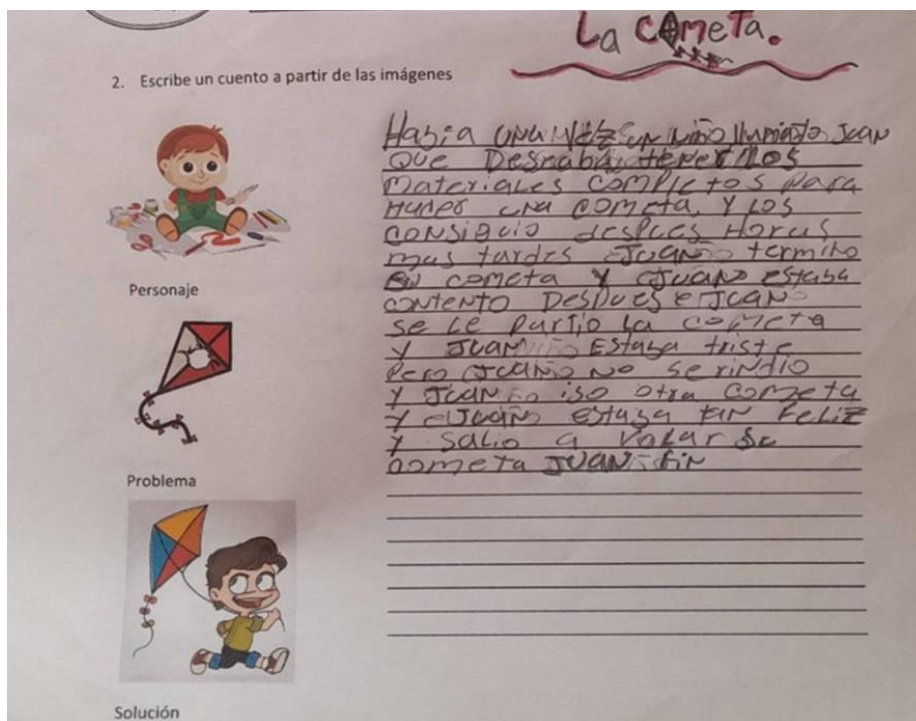 La Cometa.
2. Escribe un cuento a partir de las imágenes
Habia una vez un niño llamado Juan
Que Deseaba tener los
Materiales completos para
Hacer una cometa, Y los
consiguio despues Horas
mas tardes Juan termino
su cometa Y Juan estaba
contento Despues Juan
se le partio la cometa
Y Juan Estaba triste
Pero Juan No se rindio
Y Juan iso otra cometa
Y Juan estaba tan Feliz
Y salio a volar su
cometa Juan fin
Personaje
Problema
Solución